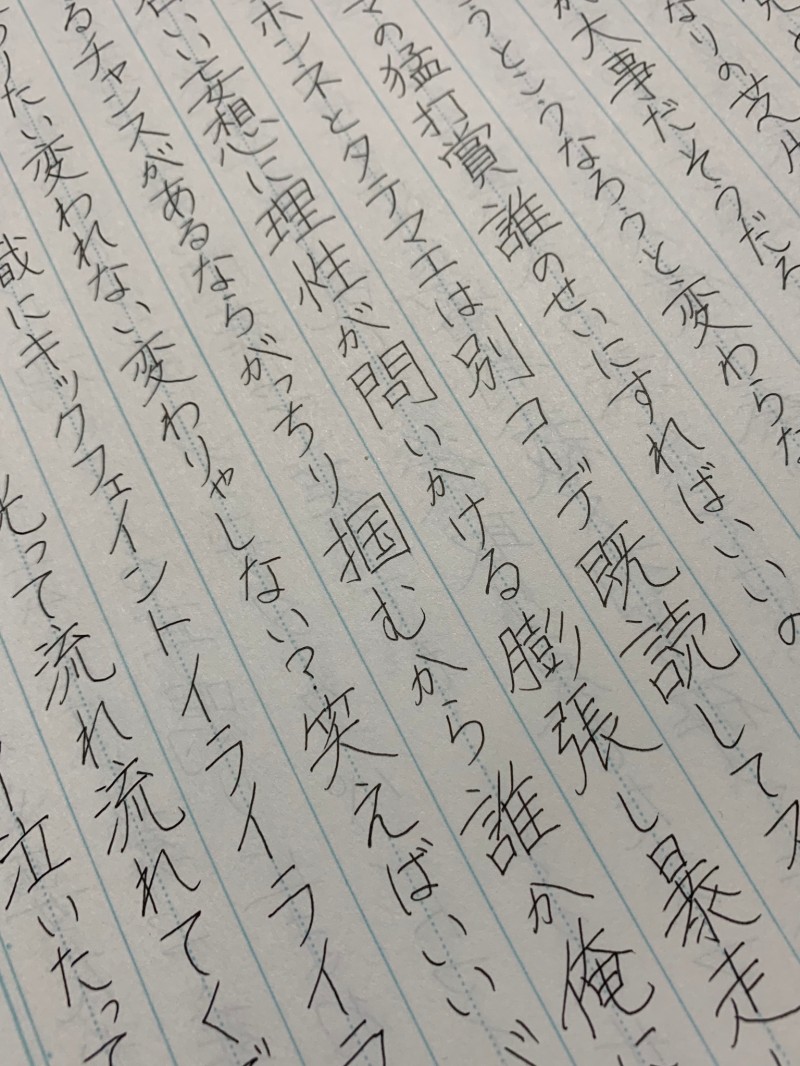 なりの芝
が大事だそうだろ
うとこうなろうと変わらな
の猛打賞誰のせいにすればいいの
ホンネとタテマエは別コーデ既読してス
いい妄想に理性が問いかける膨張し暴走
るチャンスがあるならがっちり掴むから誰か俺に
わりたい変われない変わりゃしない?笑えばいいじ
識にキックフェイントイライライラ
って流れ流れてく
泣いたって